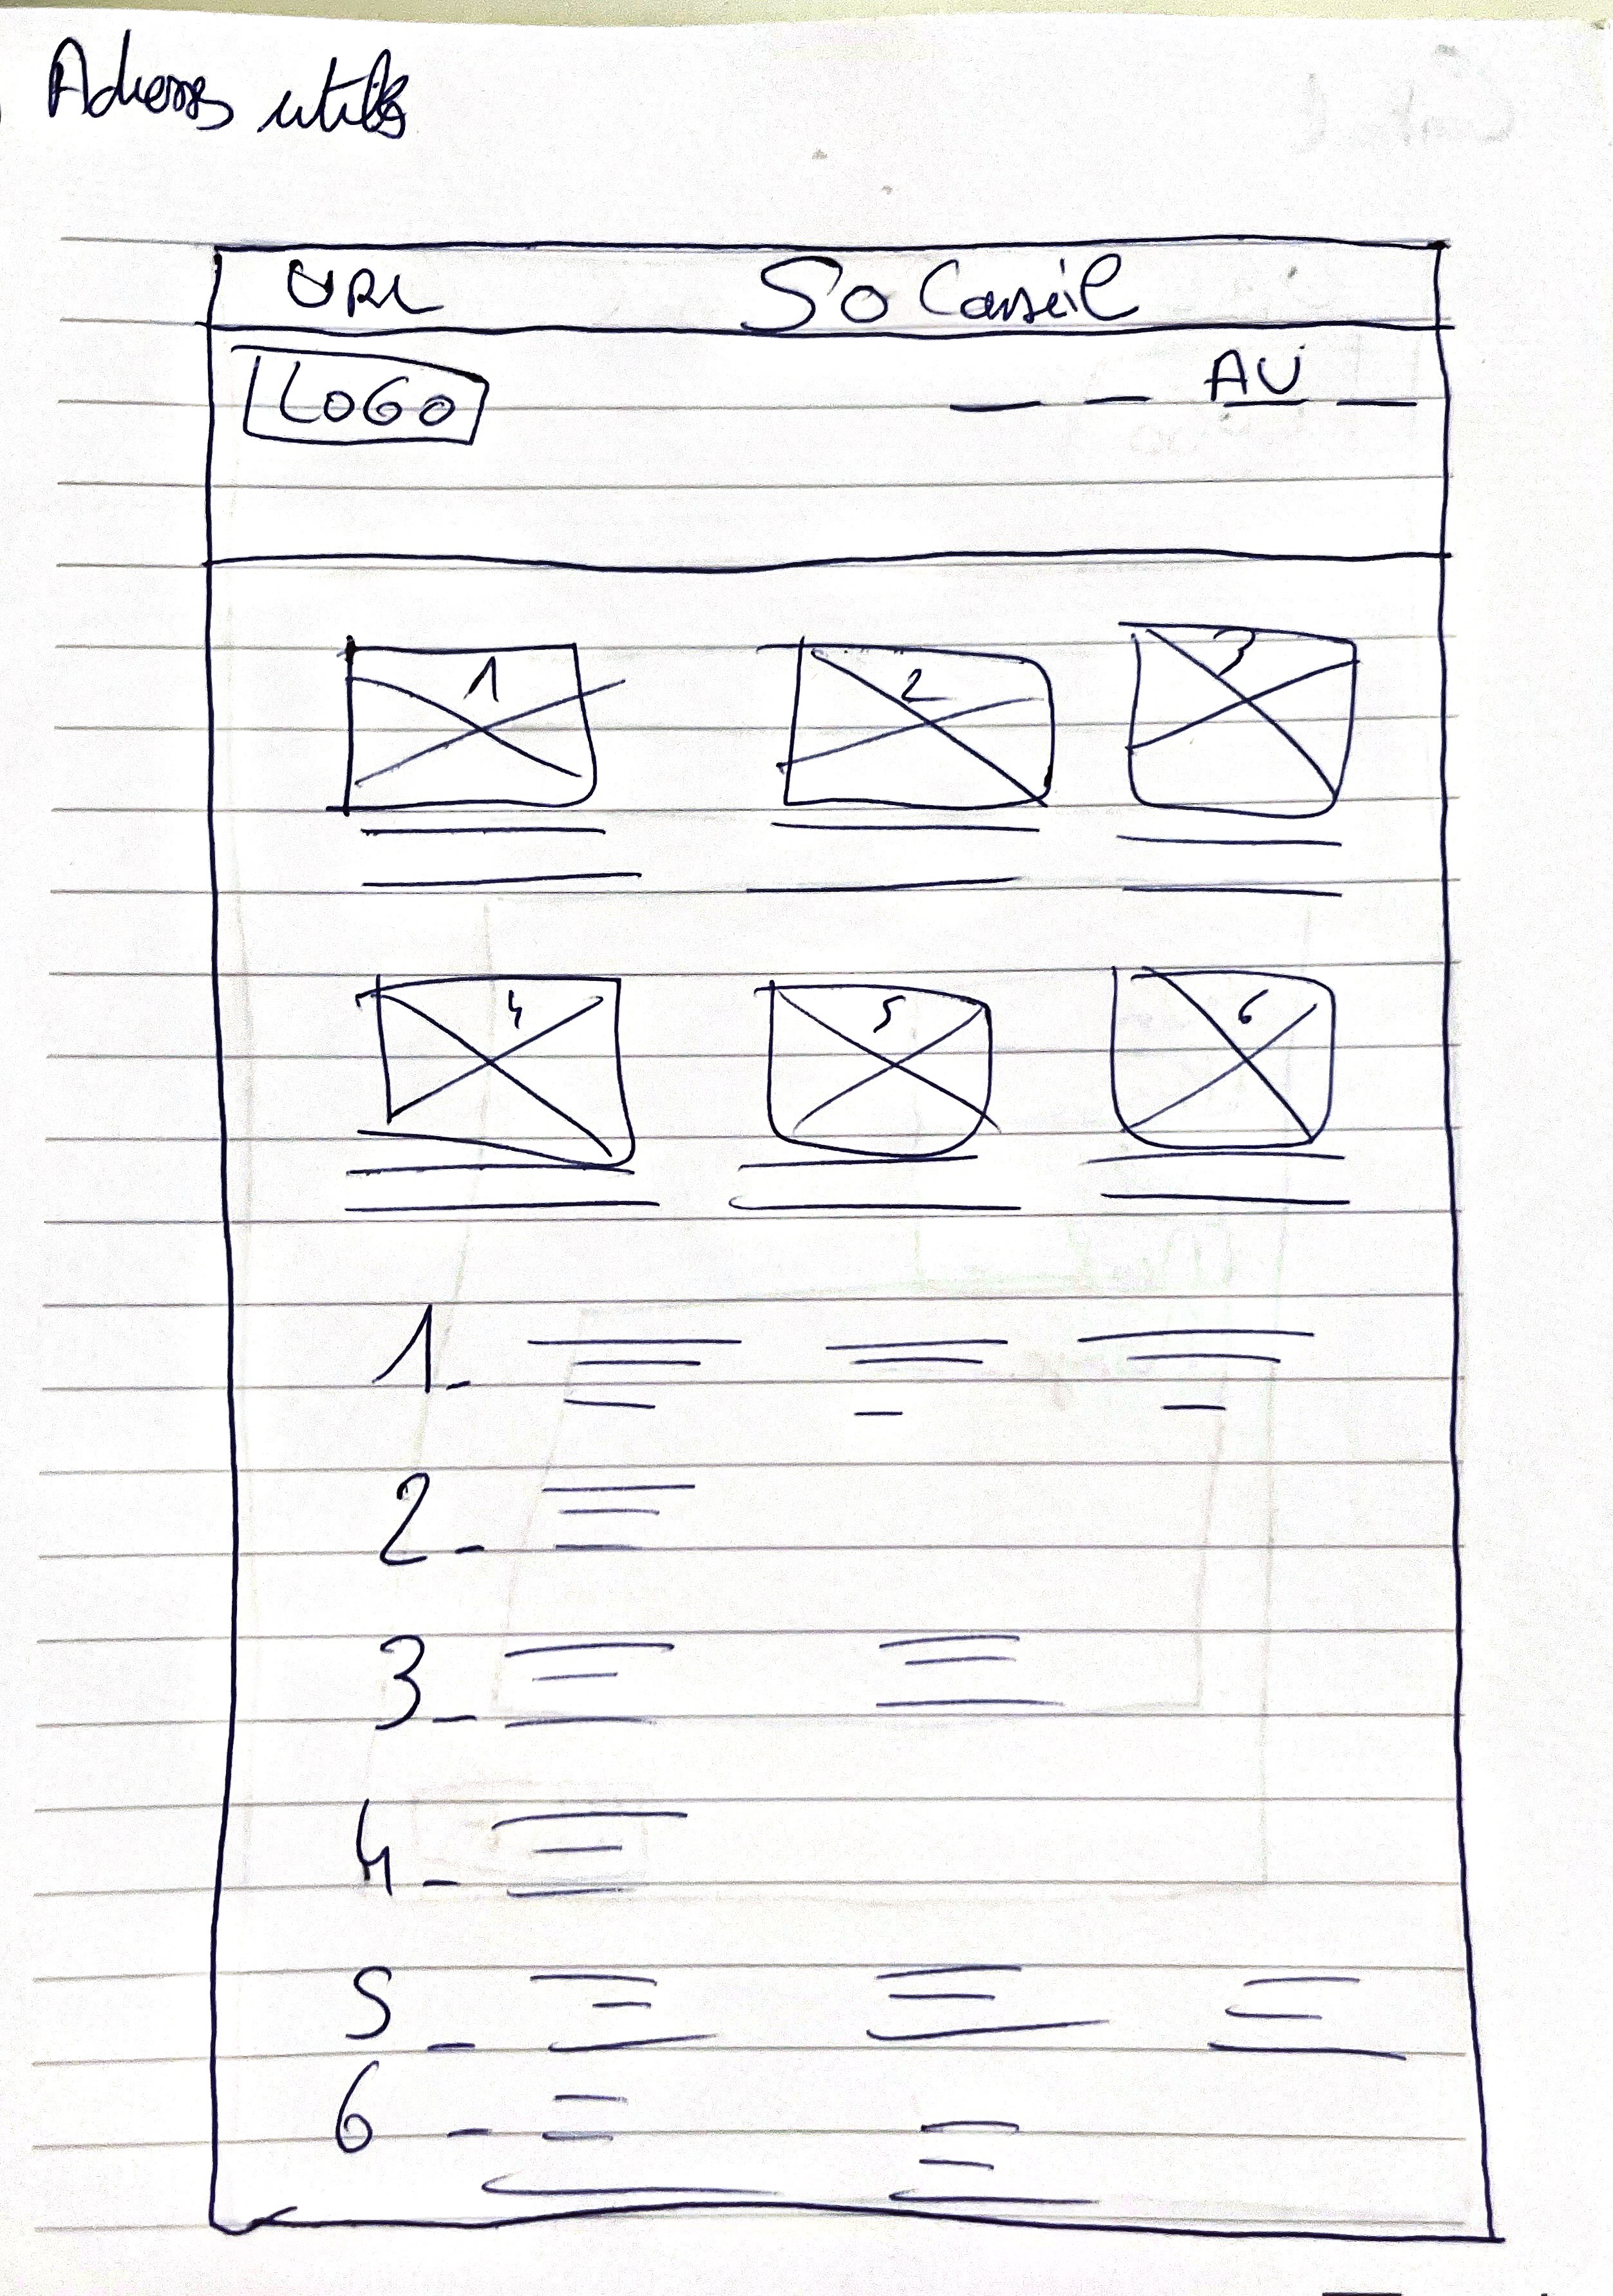 Adresses utiles
URL So Conseil
LOGO AU
1 2 3
4 5 6
1_
2_
3_
4_
5_
6_